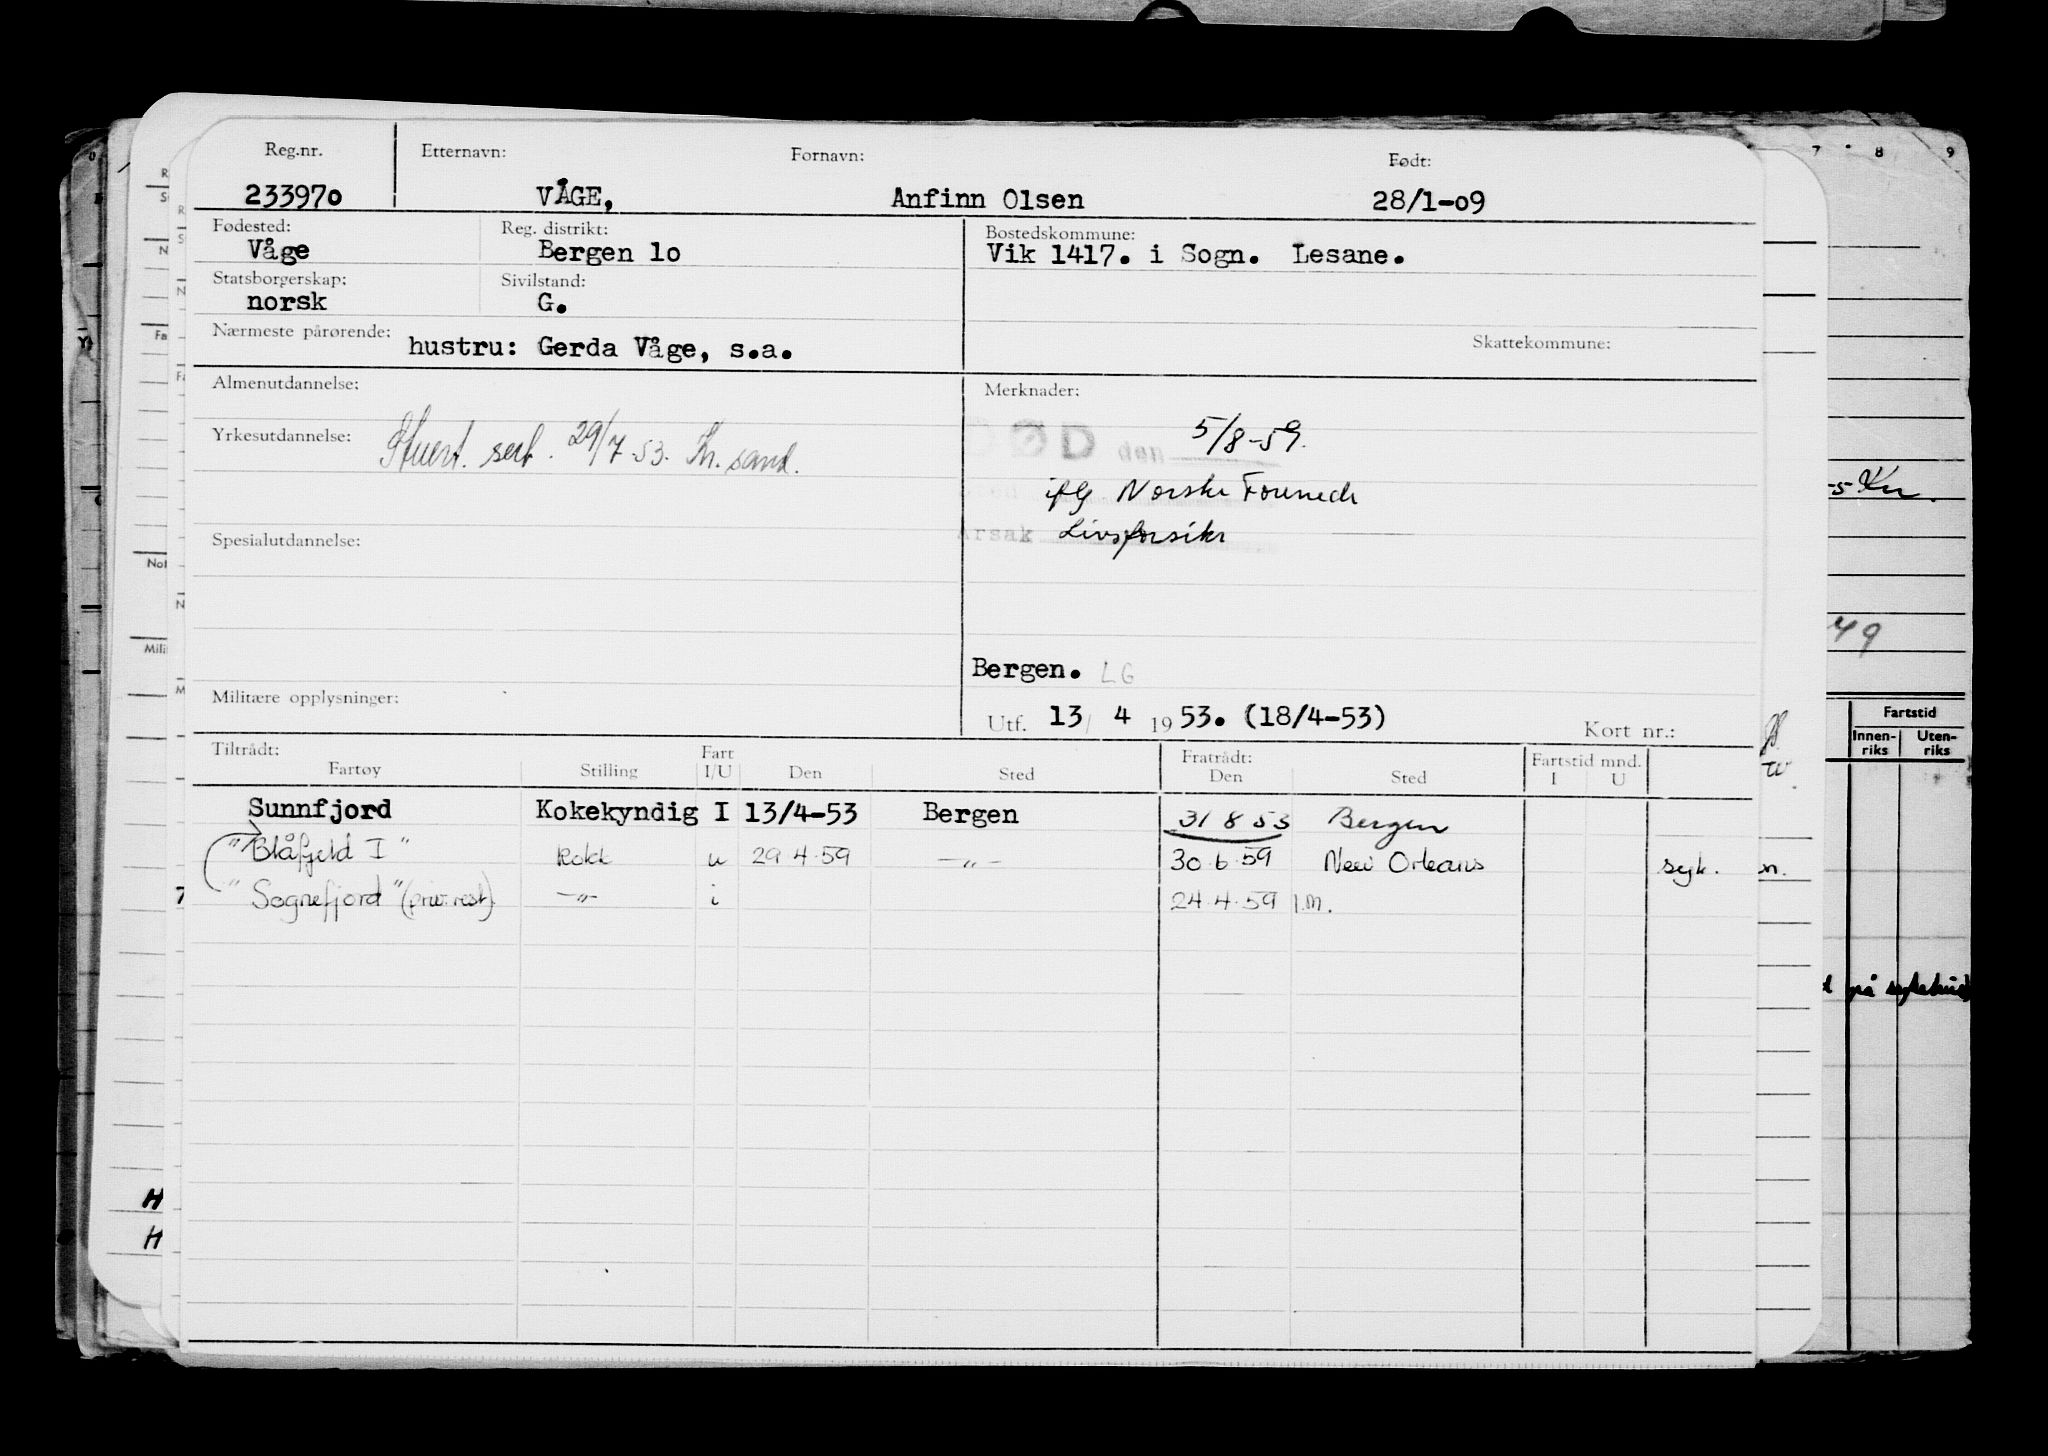 Reg.nr. Etternavn: Fornavn: Født:
233970 VÅGE, Anfinn Olsen 28/1-09
Fødested: Reg. distrikt: Bostedskommune:
Våge Bergen 1o Vik 1417. i Sogn. Lesane.
Statsborgerskap: Sivilstand:
norsk G.
Nærmeste pårørende: hustru: Gerda Våge, s.a. Skattekommune:
Almenutdannelse: Merknader:
DØD den 5/8-59.
Yrkesutdannelse: Stuert. sert. 29/7-53. Kr.sand.
iflg Norske Forenede
Årsak Livsforsikr
Spesialutdannelse:
Bergen. LG
Militære opplysninger:
Utf. 13/ 4 1953. (18/4-53) Kort nr.:
Tiltrådt: Fart Fratrådt: Fartstid mnd.
Fartøy Stilling I/U Den Sted Den Sted I U
Sunnfjord Kokekyndig I 13/4-53 Bergen 31 8 53 Bergen
"Blåfjeld I" Kokk u 29.4.59 -"- 30.6.59 New Orleans syk.
"Sognefjord" (priv.rest) -"- i 24.4.59 I.M.
7 8 9
-5 Kr.
49
Fartstid
Innen- Uten-
riks riks
på sykehus
H
H